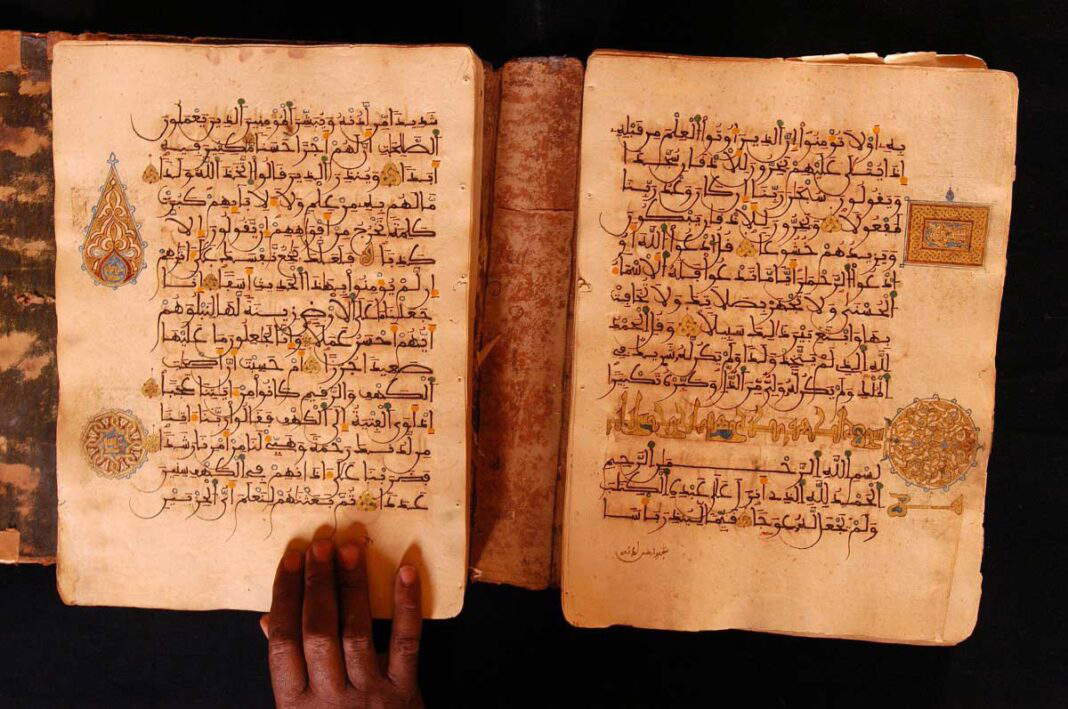 به أو لا تؤمنوا إن الذين أوتوا العلم من قبله
إذا يتلى عليهم يخرون للأذقان سجدا
ويقولون سبحان ربنا إن كان وعد ربنا
لمفعولا ويخرون للأذقان يبكون
ويزيدهم خشوعا قل ادعوا الله أو
ادعوا الرحمن أيا ما تدعوا فله الأسماء
الحسنى ولا تجهر بصلاتك ولا تخافت
بها وابتغ بين ذلك سبيلا وقل الحمد
لله الذي لم يتخذ ولدا ولم يكن له شريك في
الملك ولم يكن له ولي من الذل وكبره تكبيرا
بسم الله الرحمن الرحيم
الحمد لله الذي أنزل على عبده الكتاب
ولم يجعل له عوجا قيما لينذر بأسا
شديدا من لدنه
شديدا من لدنه ويبشر المؤمنين الذين يعملون
الصالحات أن لهم أجرا حسنا ماكثين فيه
أبدا وينذر الذين قالوا اتخذ الله ولدا
ما لهم به من علم ولا لآبائهم كبرت
كلمة تخرج من أفواههم إن يقولون إلا
كذبا فلعلك باخع نفسك على آثارهم
إن لم يؤمنوا بهذا الحديث أسفا إنا
جعلنا ما على الأرض زينة لها لنبلوهم
أيهم أحسن عملا وإنا لجاعلون ما عليها
صعيدا جرزا أم حسبت أن أصحاب
الكهف والرقيم كانوا من آياتنا عجبا
إذ أوى الفتية إلى الكهف فقالوا ربنا آتنا
من لدنك رحمة وهيئ لنا من أمرنا رشدا
فضربنا على آذانهم في الكهف سنين
عددا ثم بعثناهم لنعلم أي الحزبين